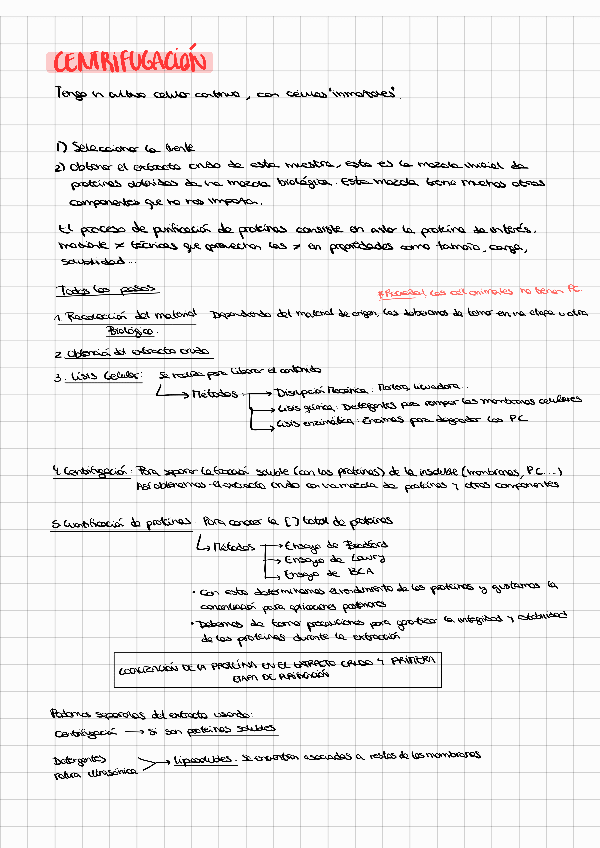 CENTRIFUGACIÓN
Tengo un cultivo celular continuo, con células "inmortales".
1) Seleccionar la fuente
2) Obtener el extracto crudo de esta muestra, esta es la mezcla inicial de
proteínas obtenidas de una mezcla biológica. Esta mezcla tiene muchos otros
componentes que no nos importa.
El proceso de purificación de proteínas consiste en aislar la proteína de interés,
mediante ≠ técnicas que aprovechan las ≠ en propiedades como tamaño, carga,
solubilidad...
Todos los pasos
* Recordad, las cél animales no tienen PC.
1. Recolección del material Dependiendo del material de origen, los deberemos de tomar en una etapa u otra
Biológico.
2. Obtención del extracto crudo
3. Lisis Celular: Se realiza para liberar el contenido
→ Métodos: → Disrupción Mecánica: Mortero, licuadora...
→ Lisis química: Detergentes para romper las membranas celulares
→ Lisis enzimática: Enzimas para degradar las PC
4. Centrifugación: Para separar la fracción soluble (con las proteínas) de la insoluble (membranas, PC...)
Así obtenemos el extracto crudo con una mezcla de proteínas y otros componentes
5. Cuantificación de proteínas Para conocer la [ ] total de proteínas
→ Métodos → Ensayo de Bradford
→ Ensayo de Lowry
→ Ensayo de BCA
• Con esto determinamos el rendimiento de las proteínas y ajustamos la
concentración para aplicaciones posteriores
• Debemos de tomar precauciones para garantizar la integridad y estabilidad
de las proteínas durante la extracción
LOCALIZACIÓN DE LA PROTEÍNA EN EL EXTRACTO CRUDO Y PRIMERA
ETAPA DE PURIFICACIÓN
Podemos separarlas del extracto usando:
Centrifugación → Si son proteínas solubles
Detergentes
→ Liposolubles. Se encuentran asociadas a restos de las membranas
ultrasónica